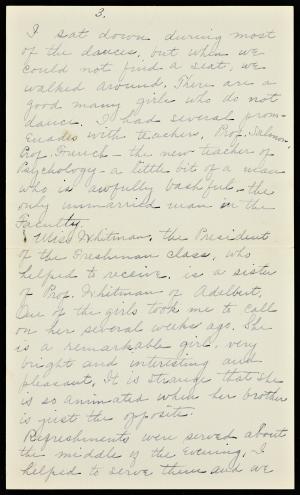 3.
I sat down during most
of the dances, but when we
could not find a seat, we
walked around. There are a
good many girls who do not
dance. I had several prom-
enades with teachers, Prof. Salmon,
Prof. French – the new teacher of
Psychology – a little bit of a man
who is awfully bashful – the
only unmarried man in the
Faculty.
Miss Whitman, the President
of the Freshman class, who
helped to receive, is a sister
of Prof. Whitman of Adelbert.
One of the girls took me to call
on her several weeks ago. She
is a remarkable girl, very
bright and interesting and
pleasant. It is strange that she
is so animated when her brother
is just the opposite.
Refreshments were served about
the middle of the evening. I
helped to serve them and we